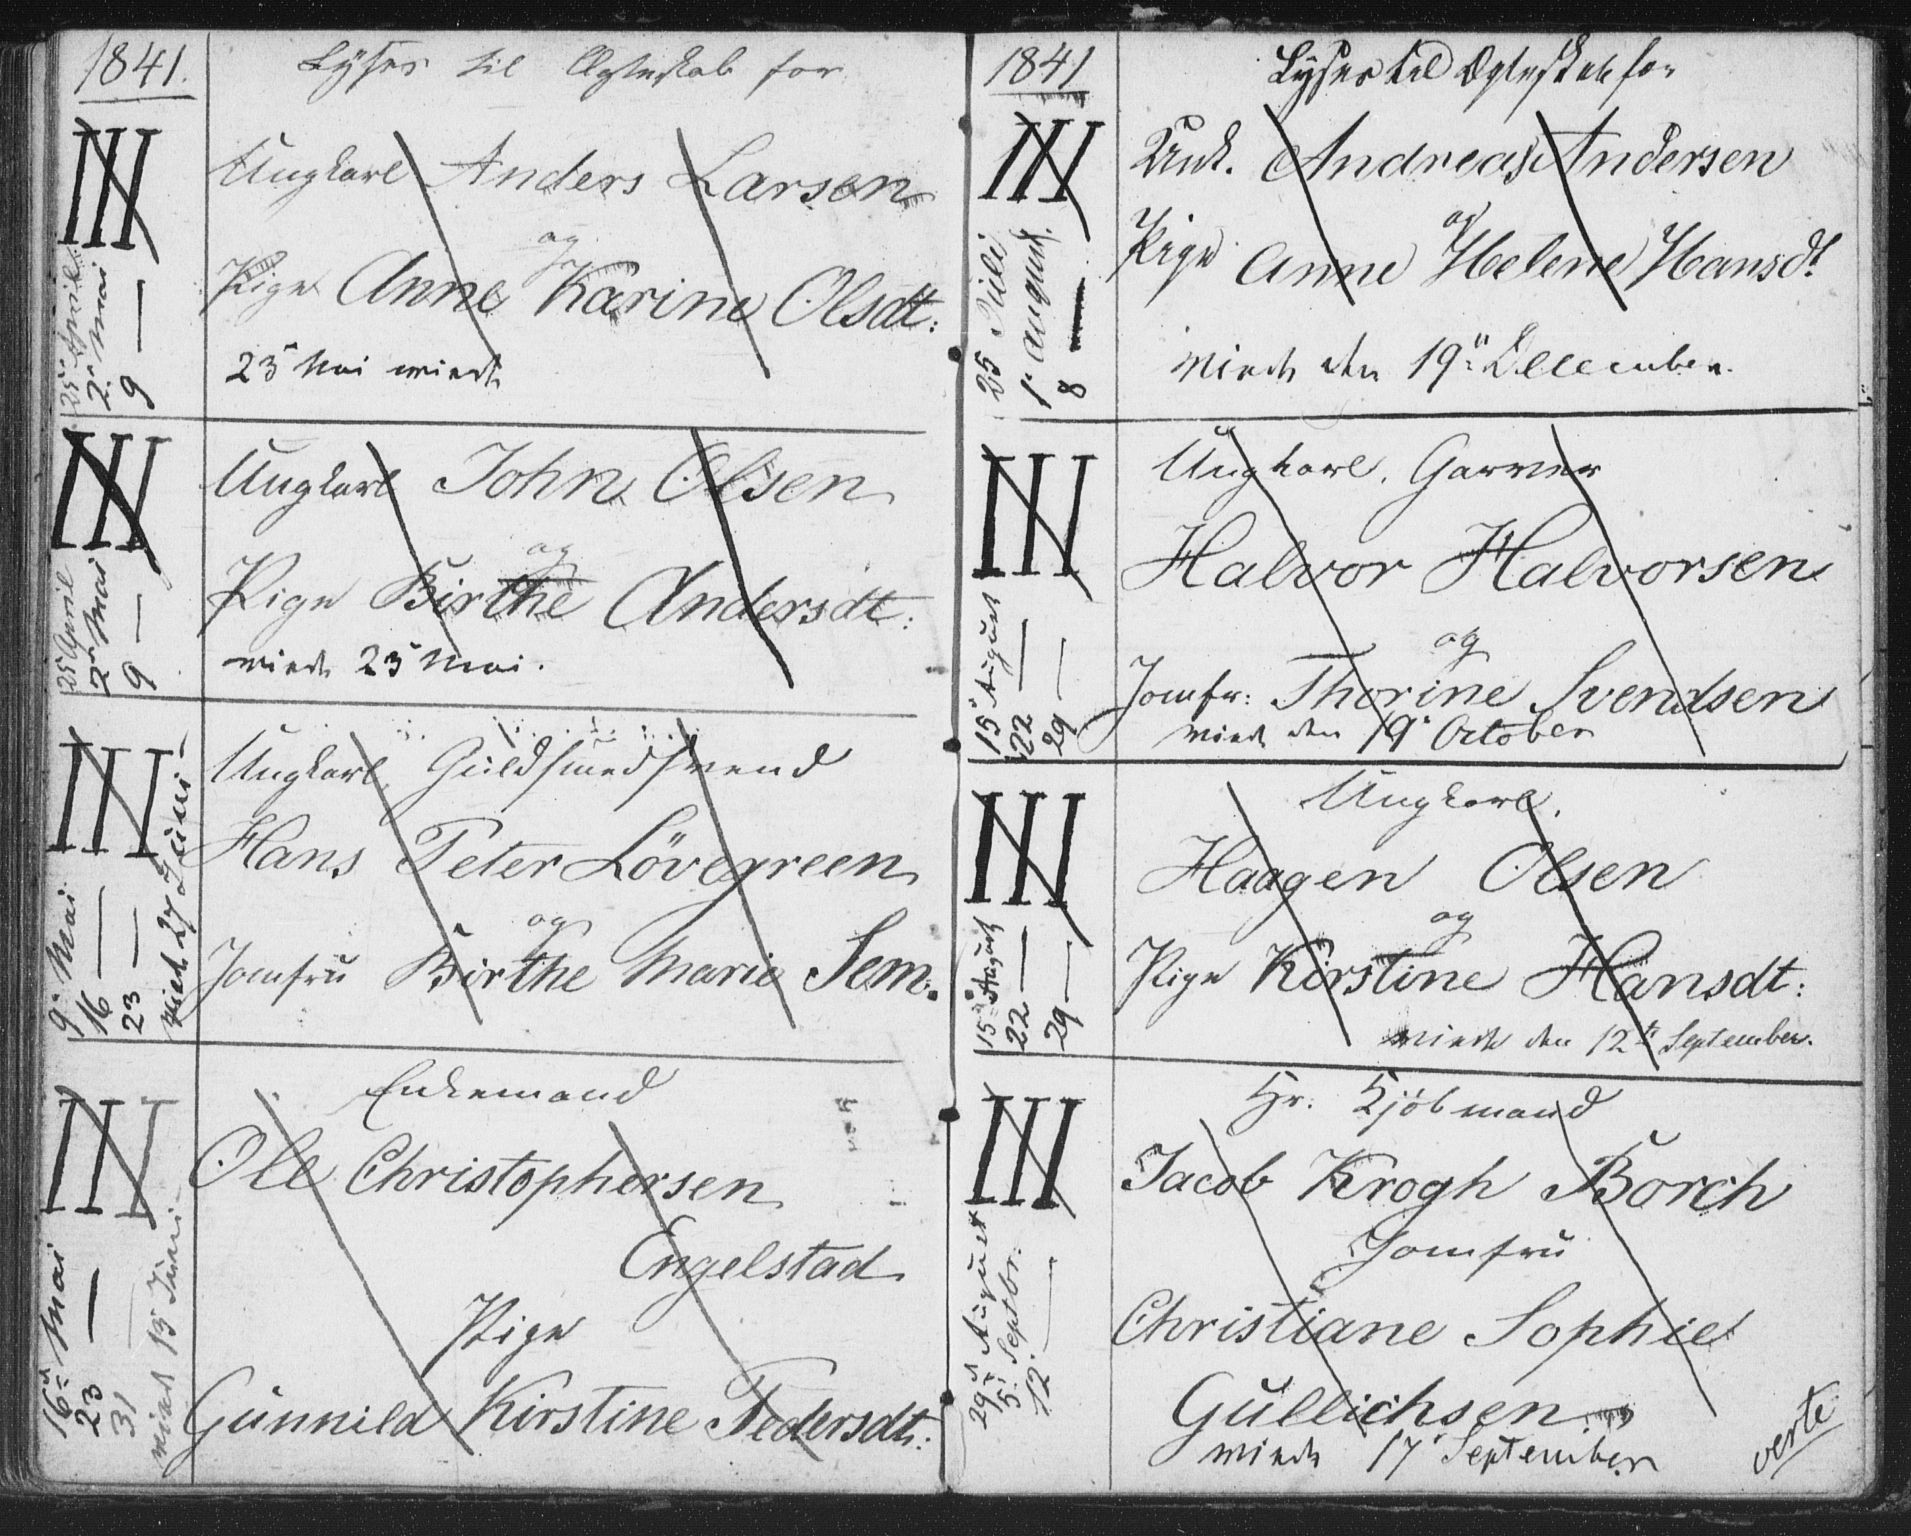 1841.
Lyses til Ægteskab for
III
25de April
2. Mai
9 —
Ungkarl Anders Larsen
og
Pige Anne Karine Olsdt:
23 Mai viede
III
25 April
2. Mai
9 —
Ungkarl John Olsen
og
Pige Birthe Andersdt:
viede 23 Mai.
III
9. Mai
16 —
23 —
viede 27 Juni
Ungkarl, Guldsmedsvend
Hans Peter Lövegreen
og
Jomfru Birthe Marie Sem.
III
16de Mai
23 —
31
viede 13 Juni
Enkemand
Ole Christophersen
Engelstad
Pige
Gunnild Kirstine Pedersdt:
1841
Lyses til Ægteskab for
III
25 Juli
1. august.
8 —
Unk. Andreas Andersen
og
Pige Anne Helene Hansdt
viede den 19de December.
III
15 August
22 —
29 —
Ungkarl, Garver
Halvor Halvorsen
og
Jomfr: Thorine Svendsen
viede den 19 October
III
15de August
22 —
29 —
Ungkarl,
Haagen Olsen
og
Pige Kirstine Hansdt:
viede den 12te September.
III
29de August
5. Septbr.
12. —
Hr. Kjöbmand
Jacob Krogh Borch
Jomfru
Christiane Sophie
Gullichsen
viede 17 September
verte